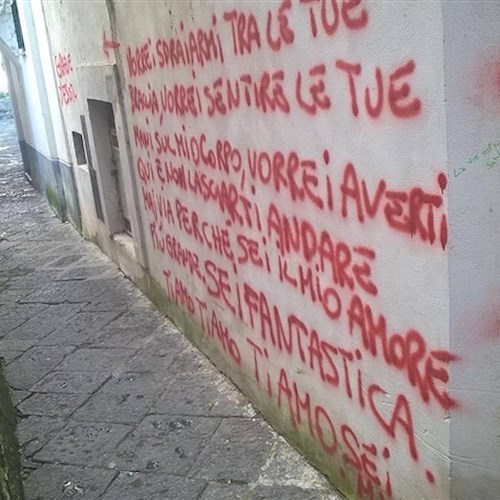 VORREI SDRAIARMI TRA LE TUE
BRACCIA, VORREI SENTIRE LE TUE
MANI SUL MIO CORPO, VORREI AVERTI
QUI E NON LASCIARTI ANDARE
MAI VIA PERCHE, SEI IL MIO AMORE
PIÙ GRANDE SEI FANTASTICA.
TIAMO TIAMO TI AMO SEI